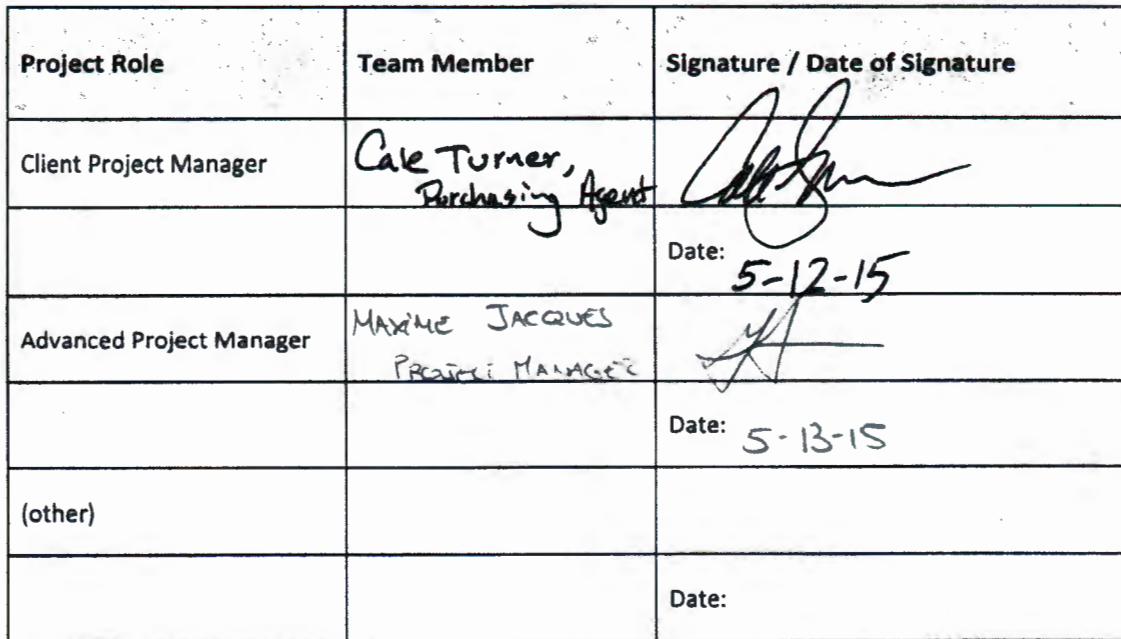 Project Role Team Member Signature / Date of Signature
Client Project Manager Cale Turner,
Purchasing Agent
Date: 5-12-15
Advanced Project Manager MAXIME JACQUES
PROJECT MANAGER
Date: 5-13-15
(other)
Date: